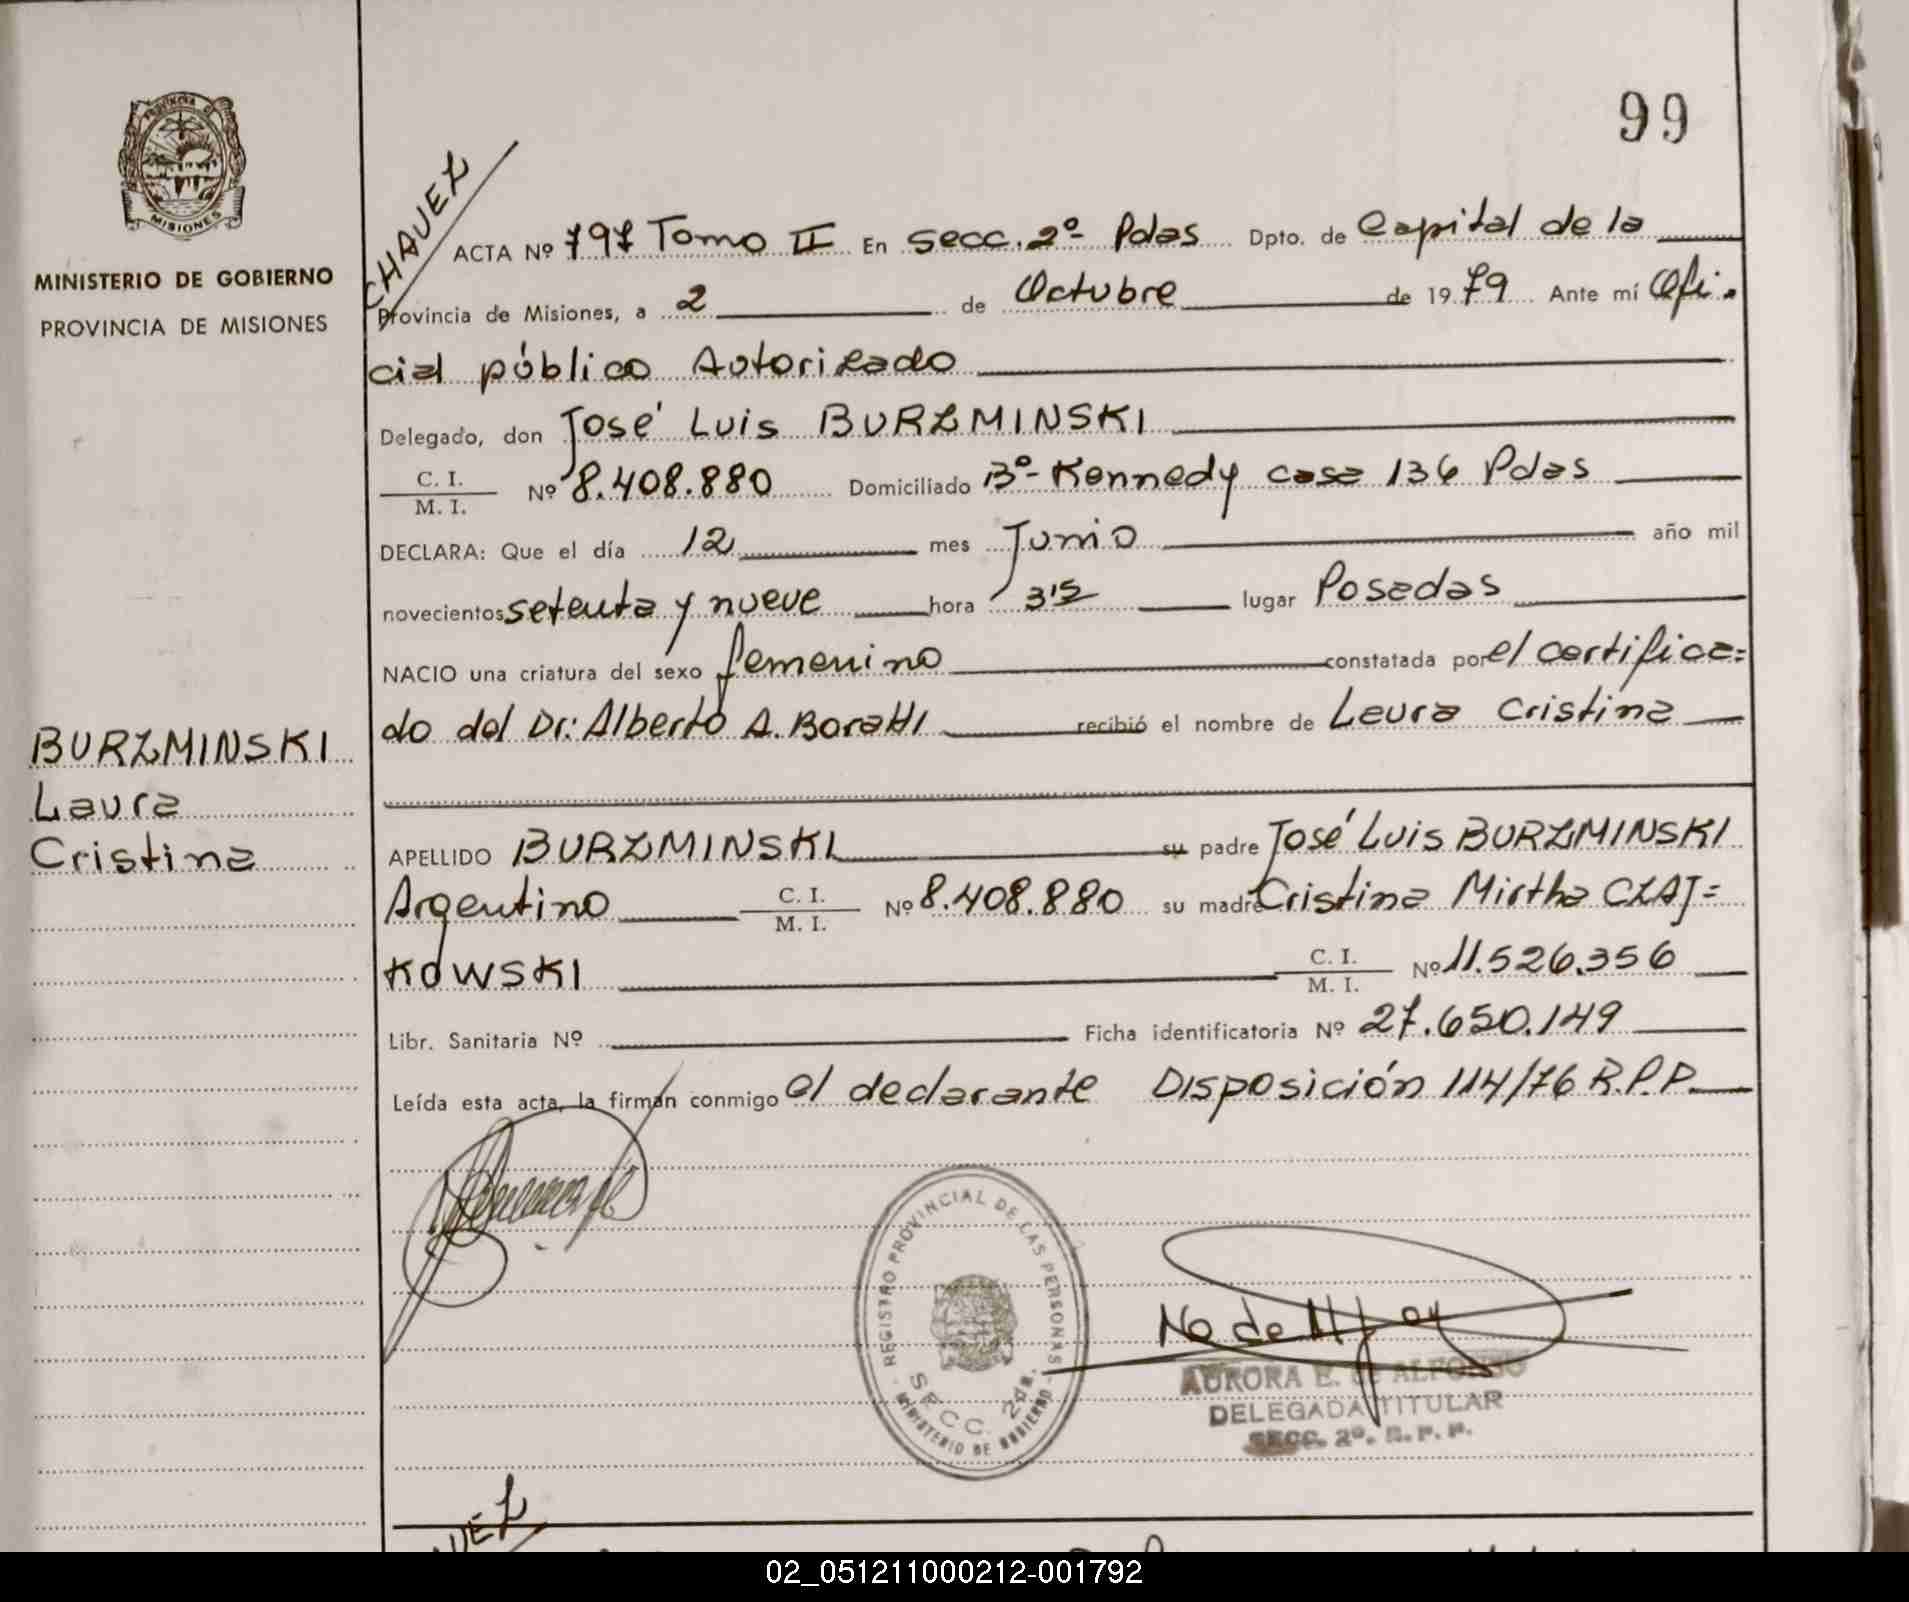 99
PROVINCIA DE
MISIONES
MINISTERIO DE GOBIERNO
PROVINCIA DE MISIONES
CHAVEZ
ACTA Nº 797 Tomo II En secc. 2º Pdas Dpto. de Capital de la
Provincia de Misiones, a 2 de Octubre de 1979 Ante mí Ofi-
cial público Autorizado
Delegado, don José Luis BURZMINSKI
C. I.
M. I. Nº 8.408.880 Domiciliado Bº Kennedy casa 136 Pdas
DECLARA: Que el día 12 mes Junio año mil
novecientos setenta y nueve hora 3'15 lugar Posadas
NACIO una criatura del sexo femenino constatada por el certifica=
do del Dr: Alberto A. Boratti recibió el nombre de Laura Cristina
BURZMINSKI
Laura
Cristina
APELLIDO BURZMINSKI su padre José Luis BURZMINSKI
Argentino C. I.
M. I. Nº 8.408.880 su madre Cristina Mirtha CZAJ=
KOWSKI C. I.
M. I. Nº 11.526.356
Libr. Sanitaria Nº Ficha identificatoria Nº 27.650.149
Leída esta acta, la firman conmigo el declarante Disposición 114/76 R.P.P.
REGISTRO PROVINCIAL DE LAS PERSONAS
SECC. 2da.
MINISTERIO DE GOBIERNO
AURORA E. de ALFONSO
DELEGADA TITULAR
SECC. 2º. R. P. P.
02_051211000212-001792